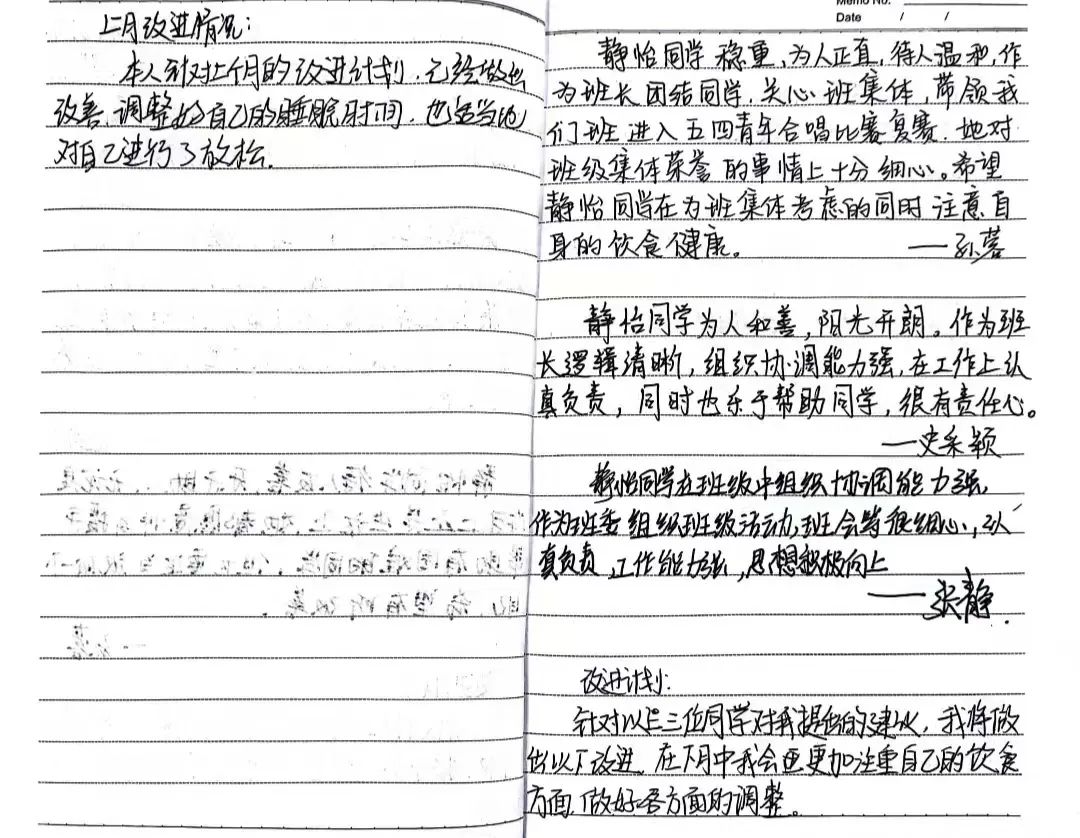 上月改进情况：
本人针对上个月的改进计划，已经做出
改善，调整好自己的睡眠时间，也适当地
对自己进行了放松。
Memo No.
Date / /
静怡同学稳重，为人正直，待人温和，作
为班长团结同学，关心班集体，带领我
们班进入五四青年合唱比赛复赛，她对
班级集体荣誉的事情上十分细心。希望
静怡同学在为班集体考虑的同时注意自
身的饮食健康。 ——孙蓉
静怡同学为人和善，阳光开朗。作为班
长逻辑清晰，组织协调能力强，在工作上认
真负责，同时也乐于帮助同学，很有责任心。
——史采颖
静怡同学在班级中组织协调能力强，
作为班委组织班级活动，班会等很细心，认
真负责，工作能力强，思想积极向上
——张静.
改进计划：
针对以上三位同学对我提出的建议，我将做
出以下改进，在下月中我会更加注重自己的饮食
方面，做好各方面的调整。